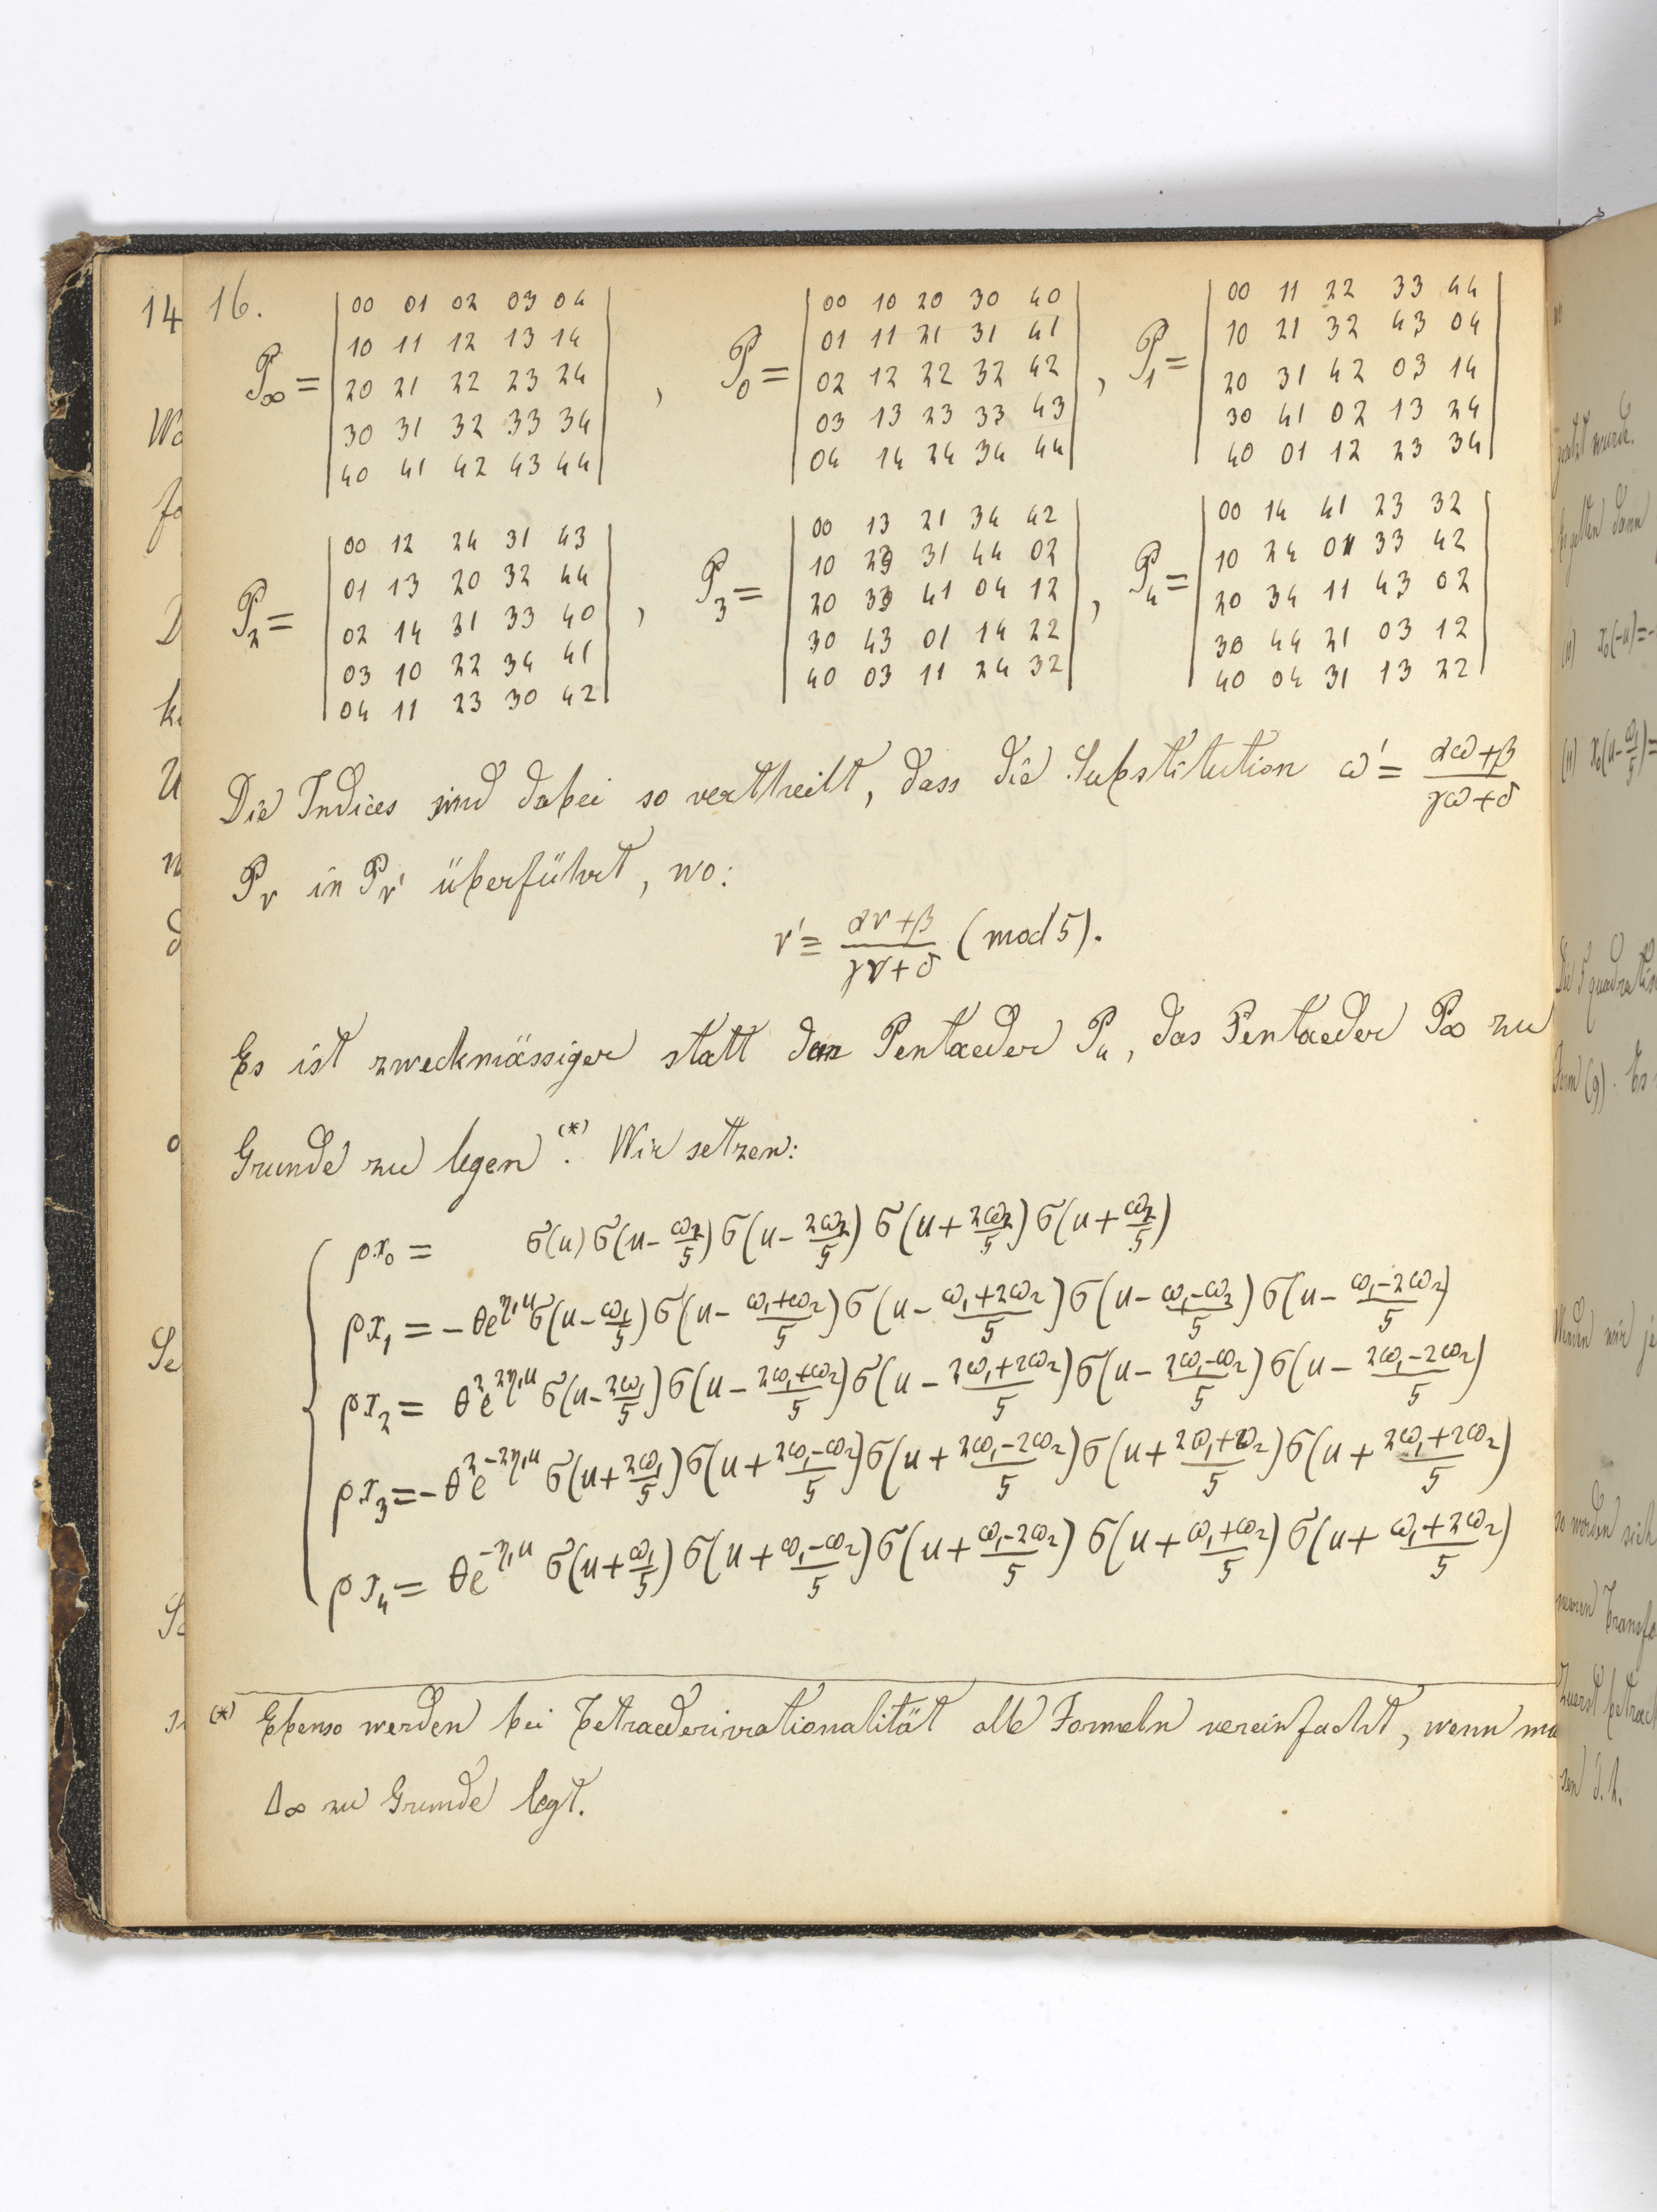 14
16.
P∞ = | 00 01 02 03 04 |
| 10 11 12 13 14 |
| 20 21 22 23 24 |
| 30 31 32 33 34 |
| 40 41 42 43 44 | ,
P₀ = | 00 10 20 30 40 |
| 01 11 21 31 41 |
| 02 12 22 32 42 |
| 03 13 23 33 43 |
| 04 14 24 34 44 | ,
P₁ = | 00 11 22 33 44 |
| 10 21 32 43 04 |
| 20 31 42 03 14 |
| 30 41 02 13 24 |
| 40 01 12 23 34 |
P₂ = | 00 12 24 31 43 |
| 01 13 20 32 44 |
| 02 14 21 33 40 |
| 03 10 22 34 41 |
| 04 11 23 30 42 | ,
P₃ = | 00 13 21 34 42 |
| 10 23 31 44 02 |
| 20 33 41 04 12 |
| 30 43 01 14 22 |
| 40 03 11 24 32 | ,
P₄ = | 00 14 41 23 32 |
| 10 24 01 33 42 |
| 20 34 11 43 02 |
| 30 44 21 03 12 |
| 40 04 31 13 22 |
Die Indices sind dabei so vertheilt, dass die Substitution ω' = (αω+β)/(γω+δ)
Pᵥ in Pᵥ' überführt, wo:
ν' ≡ (αν+β)/(γν+δ) (mod 5).
Es ist zweckmässiger statt den Pentaeder P₄, das Pentaeder P∞ zu
Grunde zu legen (*). Wir setzen:
ρx₀ = σ(u) σ(u - ω₂/5) σ(u - 2ω₂/5) σ(u + 2ω₂/5) σ(u + ω₂/5)
ρx₁ = -θe^{η₁u} σ(u - ω₁/5) σ(u - (ω₁+ω₂)/5) σ(u - (ω₁+2ω₂)/5) σ(u - (ω₁-ω₂)/5) σ(u - (ω₁-2ω₂)/5)
ρx₂ = θ²e^{2η₁u} σ(u - 2ω₁/5) σ(u - (2ω₁+ω₂)/5) σ(u - (2ω₁+2ω₂)/5) σ(u - (2ω₁-ω₂)/5) σ(u - (2ω₁-2ω₂)/5)
ρx₃ = -θ²e^{-2η₁u} σ(u + 2ω₁/5) σ(u + (2ω₁-ω₂)/5) σ(u + (2ω₁-2ω₂)/5) σ(u + (2ω₁+ω₂)/5) σ(u + (2ω₁+2ω₂)/5)
ρx₄ = θe^{-η₁u} σ(u + ω₁/5) σ(u + (ω₁-ω₂)/5) σ(u + (ω₁-2ω₂)/5) σ(u + (ω₁+ω₂)/5) σ(u + (ω₁+2ω₂)/5)
(*) Ebenso werden bei Tetraederirrationalität alle Formeln vereinfacht, wenn
Δ∞ zu Grunde legt.